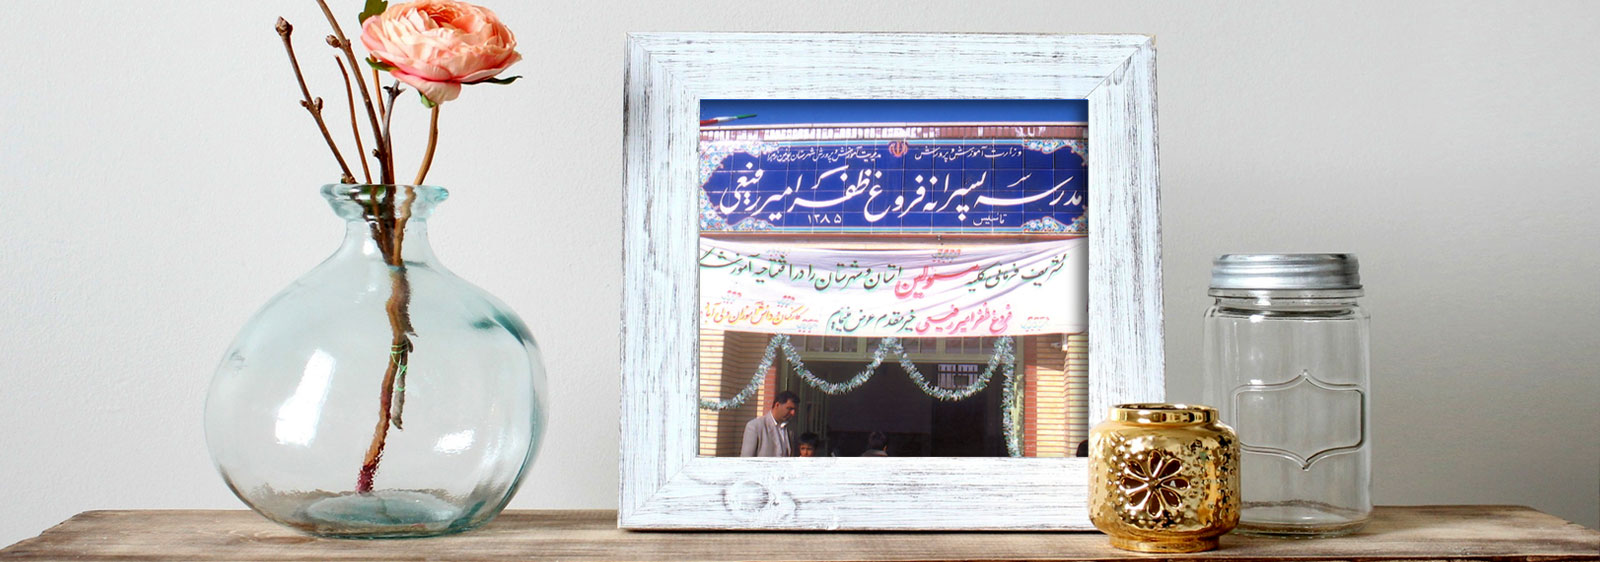 وزارت آموزش و پرورش مدیریت آموزش و پرورش شهرستان
مدرسه پسرانه فروغ ظفر امیر رفیعی
تاسیس ۱۳۸۵
تشریف فرمائی کلیه مسئولین استان و شهرستان را در افتتاحیه
فروغ ظفر امیر رفیعی خیر مقدم عرض مینمایم